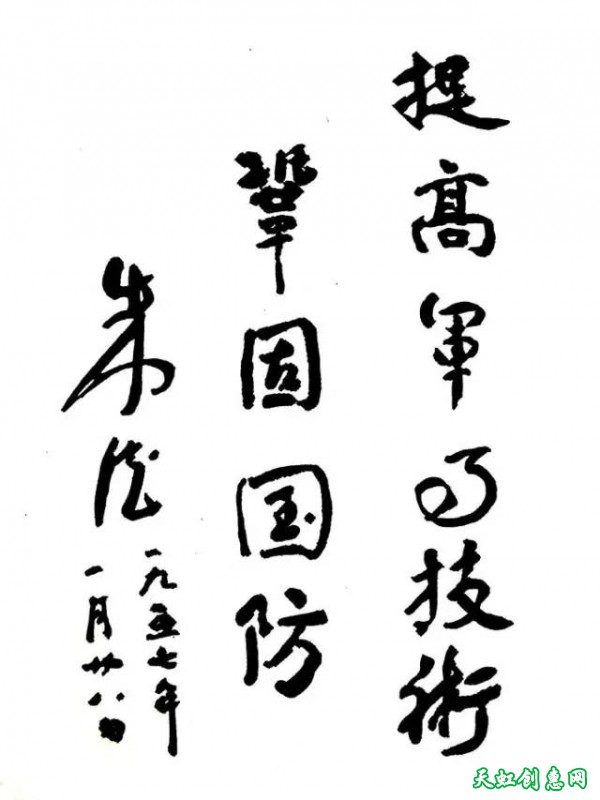 提高軍事技術
鞏固国防
朱德
一九五七年
一月廿八日
天虹创惠网